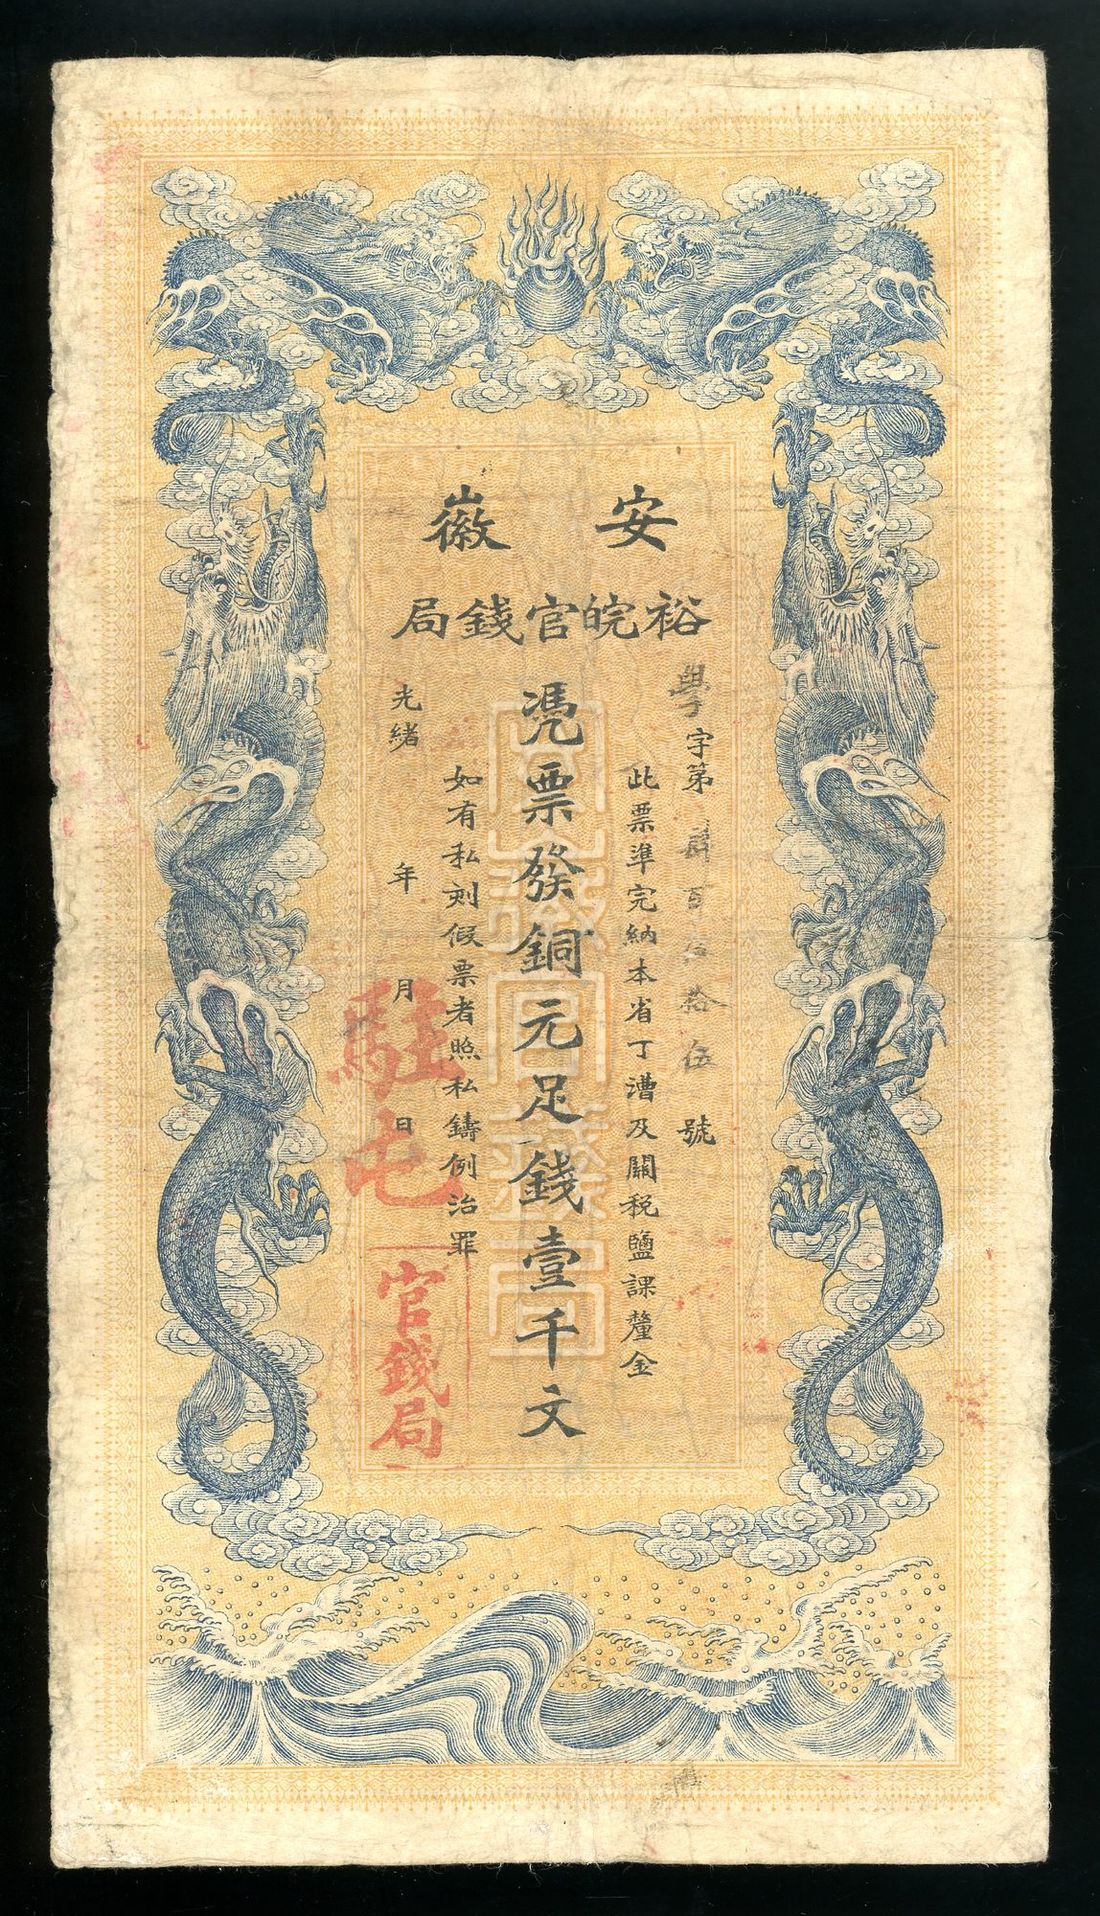 安徽
裕皖官錢局
學字第 百 拾伍號
此票準完納本省丁漕及關稅鹽課釐金
憑票發銅元足錢壹千文
如有私刻假票者照私鑄例治罪
光緒 年 月 日
駐屯
官錢局